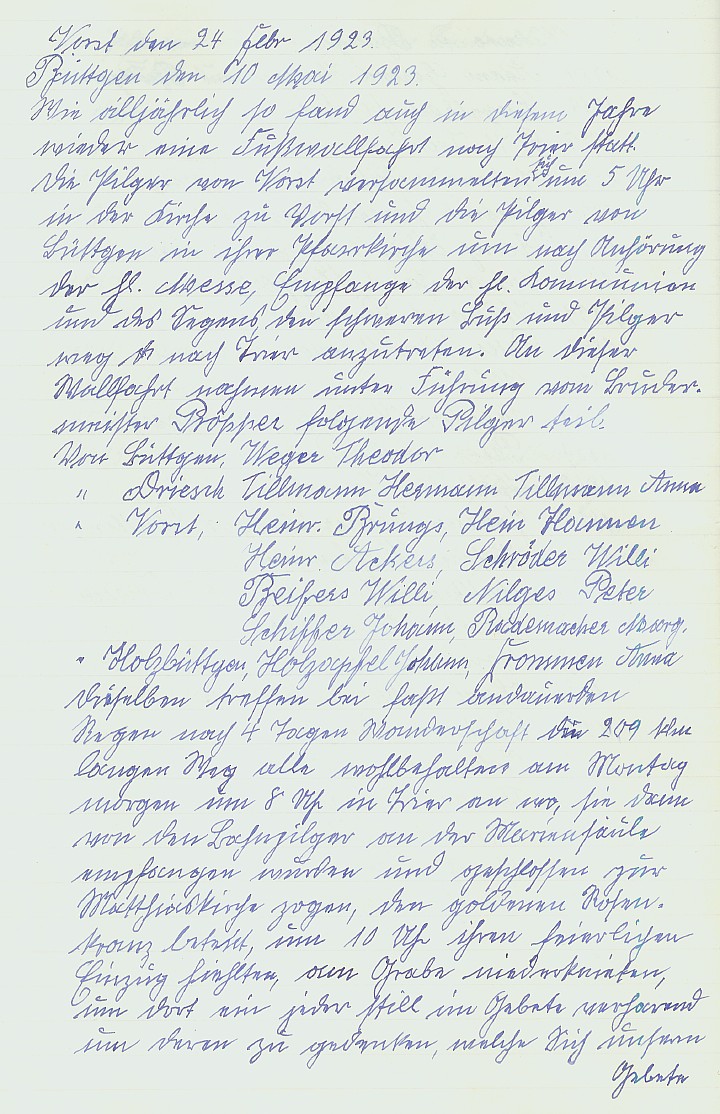 Vorst den 24 Febr 1923.
Büttgen den 10 Mai 1923.
Wie alljährlich so fand auch in diesem Jahre
wieder eine Fußwallfahrt nach Trier statt.
Die Pilger von Vorst versammelten sich um 5 Uhr
in der Kirche zu Vorst und die Pilger von
Büttgen in ihrer Pfarrkirche um nach Anhörung
der hl. Messe, Empfange der hl. Kommunion
und des Segens, den schweren Buß und Pilger
weg nach Trier anzutreten. An dieser
Wallfahrt nahmen unter Führung vom Bruder-
meister Pöpper folgende Pilger teil.
Von Büttgen, Weger Theodor
" Driesch Tillmann Hermann Tillmann Anna
" Vorst, Heinr. Brungs, Hein Hannen
Heinr. Ackers, Schröder Willi
Beifers Willi, Nilges Peter
Schiffer Johann, Rademacher Marg.
" Holzbüttgen, Holzapfel Johann, Fronsmen Anna
Dieselben treffen bei faßt andauerden
Regen nach 4 Tagen Wanderschaft die 209 klm
langen Weg alle wohlbehalten am Montag
morgen um 8 Uhr in Trier an wo, sie dann
von den Bahnpilger an der Mariensäule
empfangen wurden und geschlossen zur
Matthiaskirche zogen, den goldenen Rosen-
kranz betent, um 10 Uhr ihren feierlichen
Einzug hiehlten, am Grabe niederknieten,
um dort ein jeder still im Gebete verharend
um deren zu gedenken, welche Sich unsern
Gebete